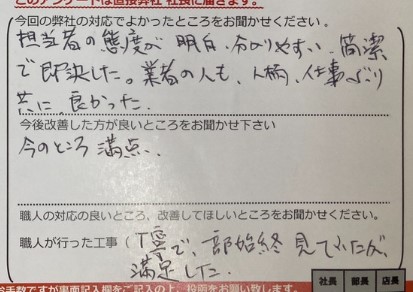 このアンケートは直接弊社 社長に届きます。
今回の弊社の対応でよかったところをお聞かせください。
担当者の態度が 明白、分かりやすい、簡潔
で即決した。業者の人も、人柄、仕事ぶり
共に、良かった。
今後改善した方が良いところをお聞かせ下さい
今のところ 満点、
職人の対応の良いところ、改善してほしいところをお聞かせください。
職人が行った工事（丁寧で、一部始終 見ていたが、
満足した。
社長 部長 店長
お手数ですが裏面記入欄をご記入の上、投函をお願い致します。